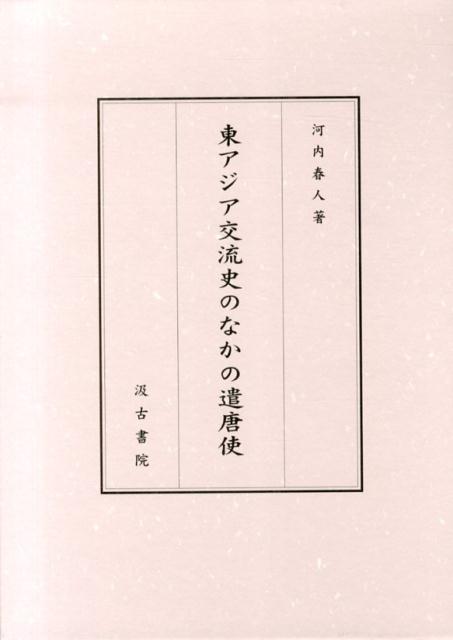 河内春人著
東アジア交流史のなかの遣唐使
汲古書院